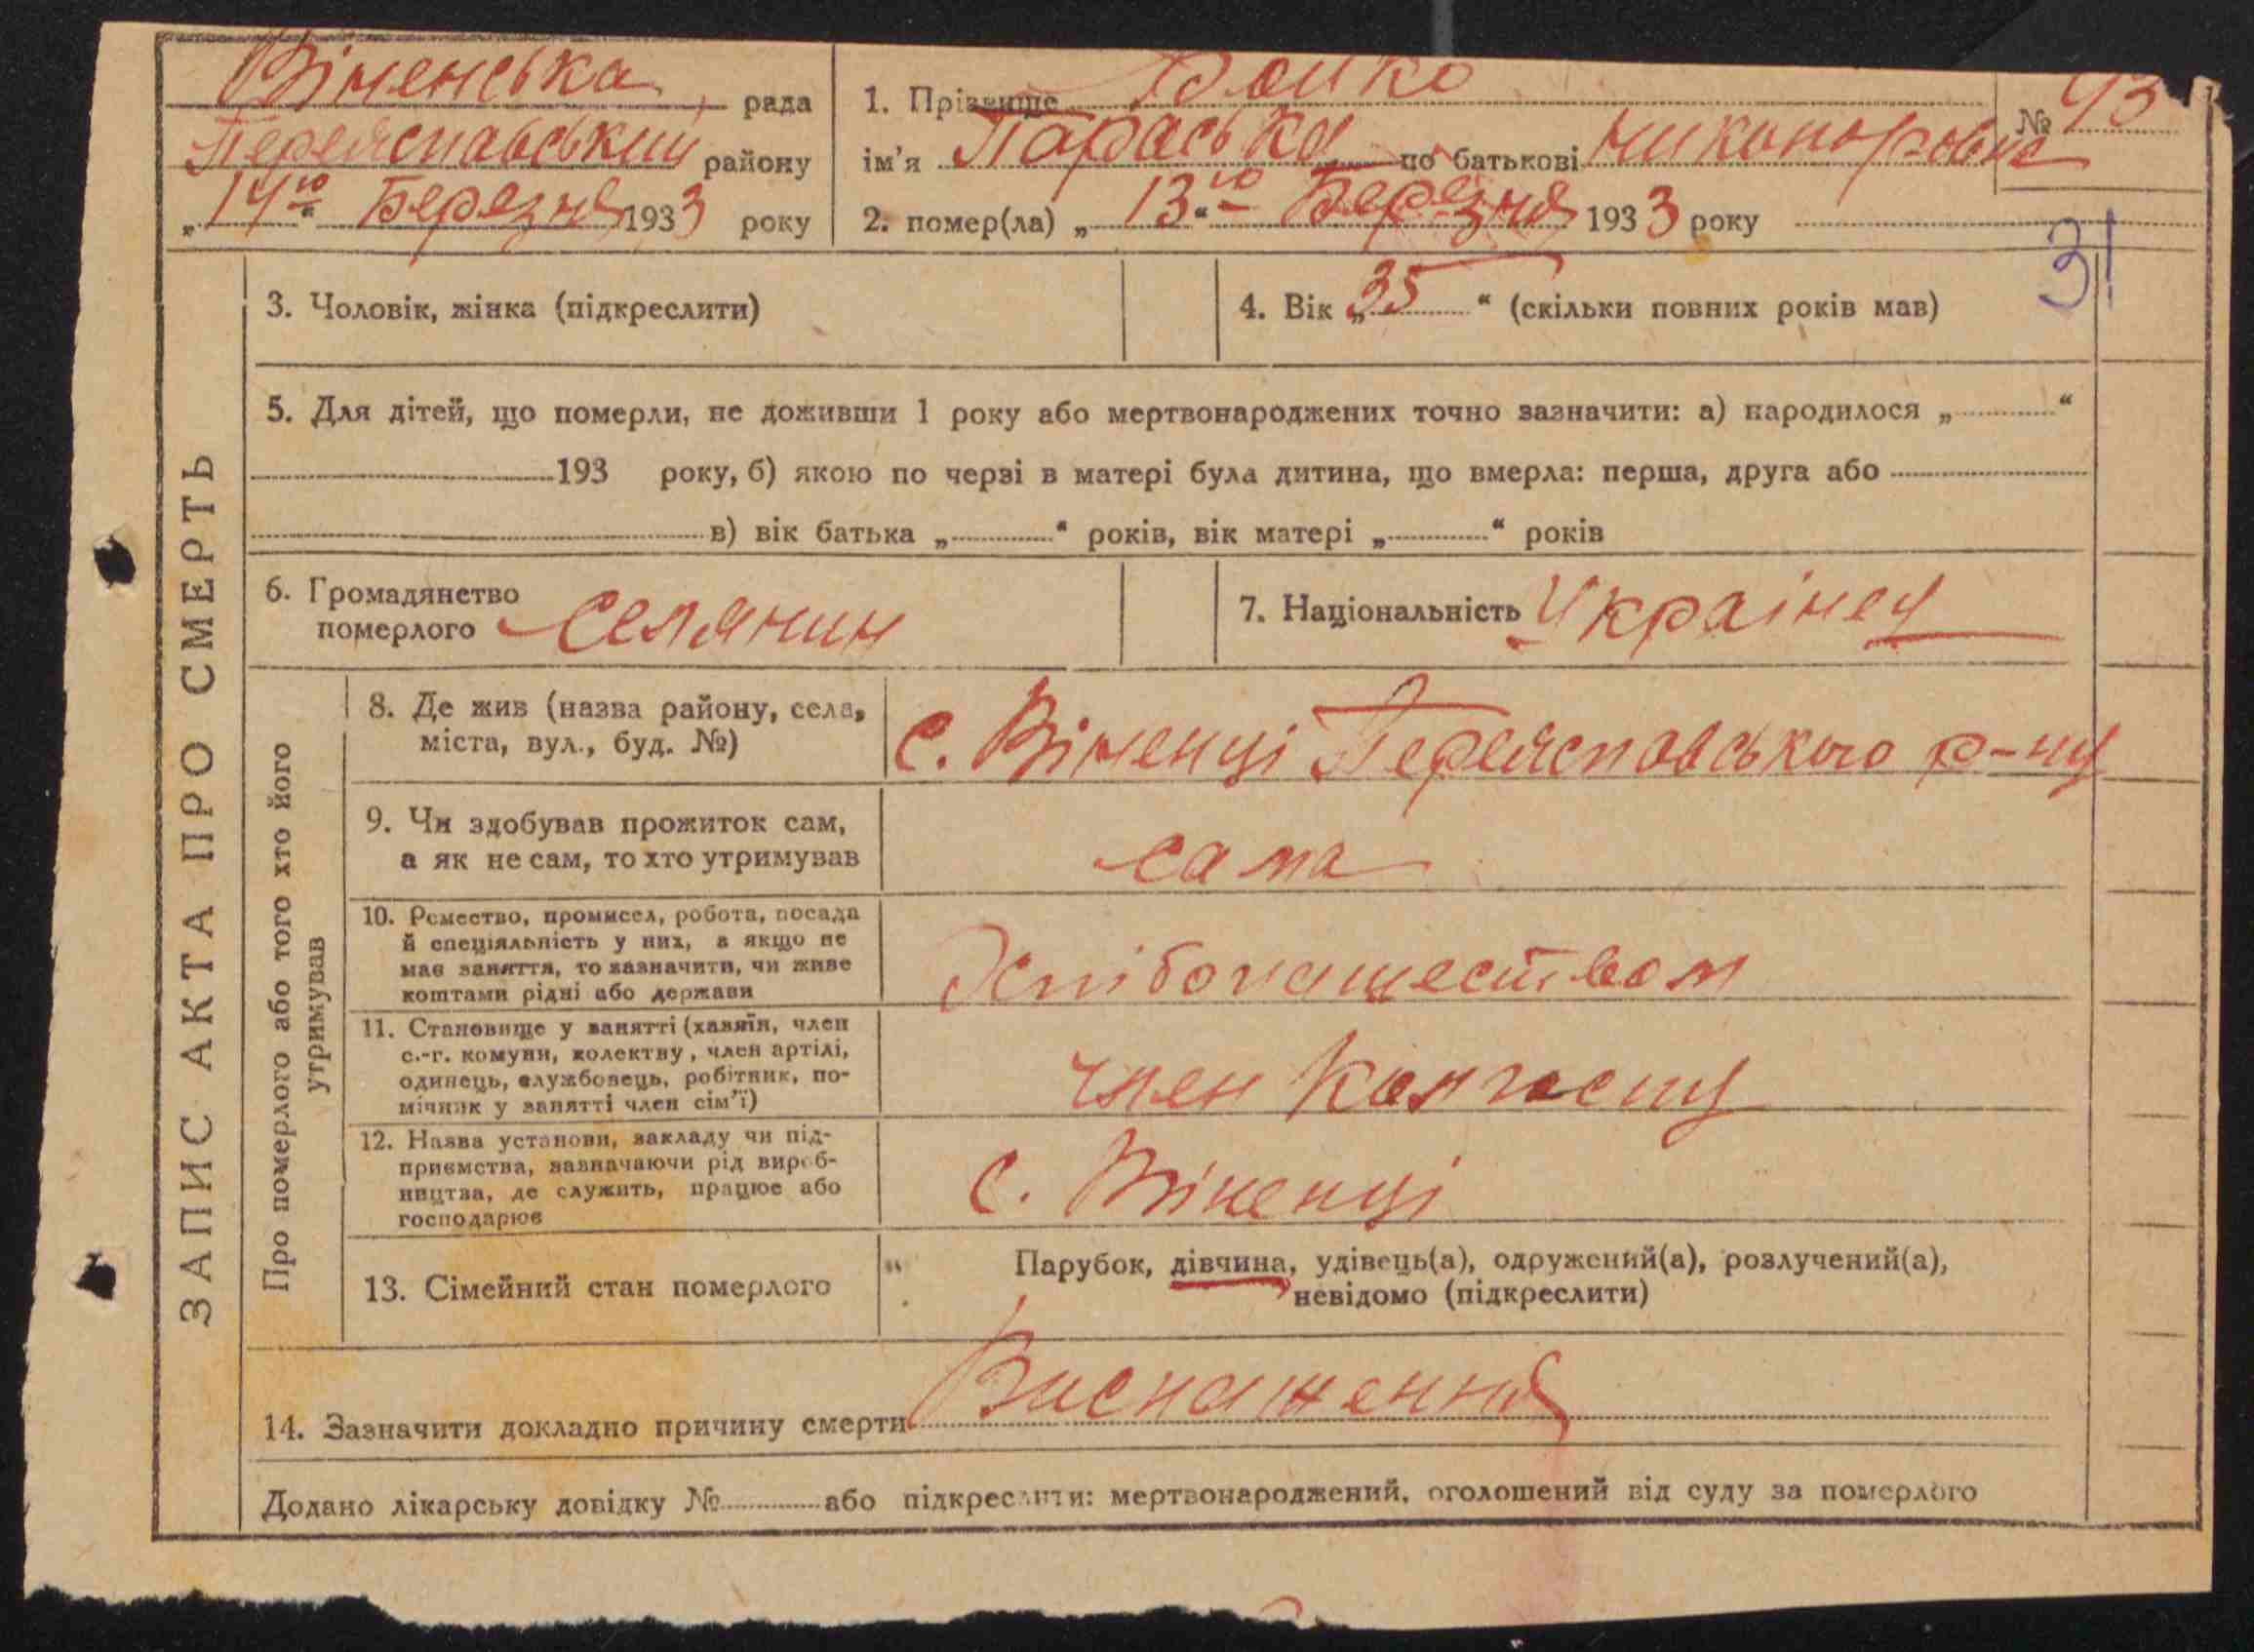 Віненська рада
Переяславський району
„14го“ Березня 1933 року
1. Прізвище Бойко
№ 93
ім'я Параська по батькові Никоноровна
2. помер(ла) „13го“ Березня 1933 року
31
ЗАПИС АКТА ПРО СМЕРТЬ
3. Чоловік, жінка (підкреслити)
4. Вік „35“ (скільки повних років мав)
5. Для дітей, що померли, не доживши 1 року або мертвонароджених точно зазначити: а) народилося „ “
193 року, б) якою по черзі в матері була дитина, що вмерла: перша, друга або
в) вік батька „ “ років, вік матері „ “ років
6. Громадянство
померлого Селянин
7. Національність Украінец
Про померлого або того хто його
утримував
8. Де жив (назва району, села,
міста, вул., буд. №)
с. Віненці Переяславського р-ну
9. Чи здобував прожиток сам,
а як не сам, то хто утримував
сама
10. Ремество, промисел, робота, посада
й спеціяльність у них, а якщо не
має заняття, то зазначити, чи живе
коштами рідні або держави
Хлібопашеством
11. Становище у занятті (хазяїн, член
с.-г. комуни, колективу, член артілі,
одинець, службовець, робітник, по-
мічник у занятті член сім'ї)
член Колгоспу
12. Назва установи, закладу чи під-
приємства, зазначаючи рід вироб-
ництва, де служить, працює або
господарює
с. Віненці
13. Сімейний стан померлого
Парубок, дівчина, удівець(а), одружений(а), розлучений(а),
невідомо (підкреслити)
14. Зазначити докладно причину смерти Виснаження
Додано лікарську довідку № або підкреслити: мертвонароджений, оголошений від суду за померлого